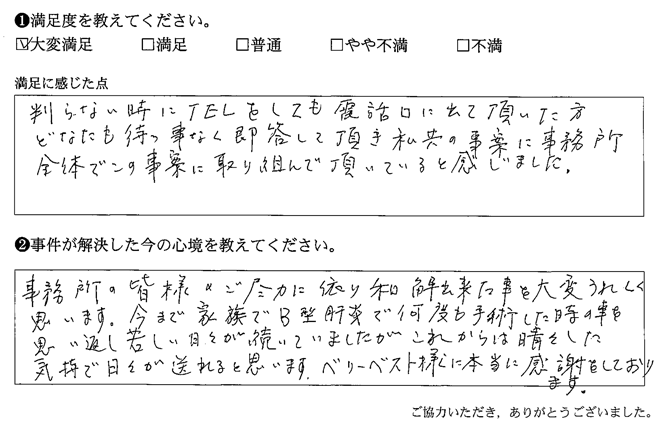 ❶満足度を教えてください。
☑大変満足 □満足 □普通 □やや不満 □不満
満足に感じた点
判らない時にTELをしても電話口に出て頂いた方
どなたも待つ事なく即答して頂き私共の事案に事務所
全体でこの事案に取り組んで頂いていると感じました。
❷事件が解決した今の心境を教えてください。
事務所の皆様のご尽力に依り和解出来た事を大変うれしく
思います。今まで家族でB型肝炎で何度も手術した時の事を
思い返し苦しい日々が続いていましたがこれからは晴々した
気持で日々が送れると思います。ベリーベスト様に本当に感謝をしており
ます。
ご協力いただき、ありがとうございました。